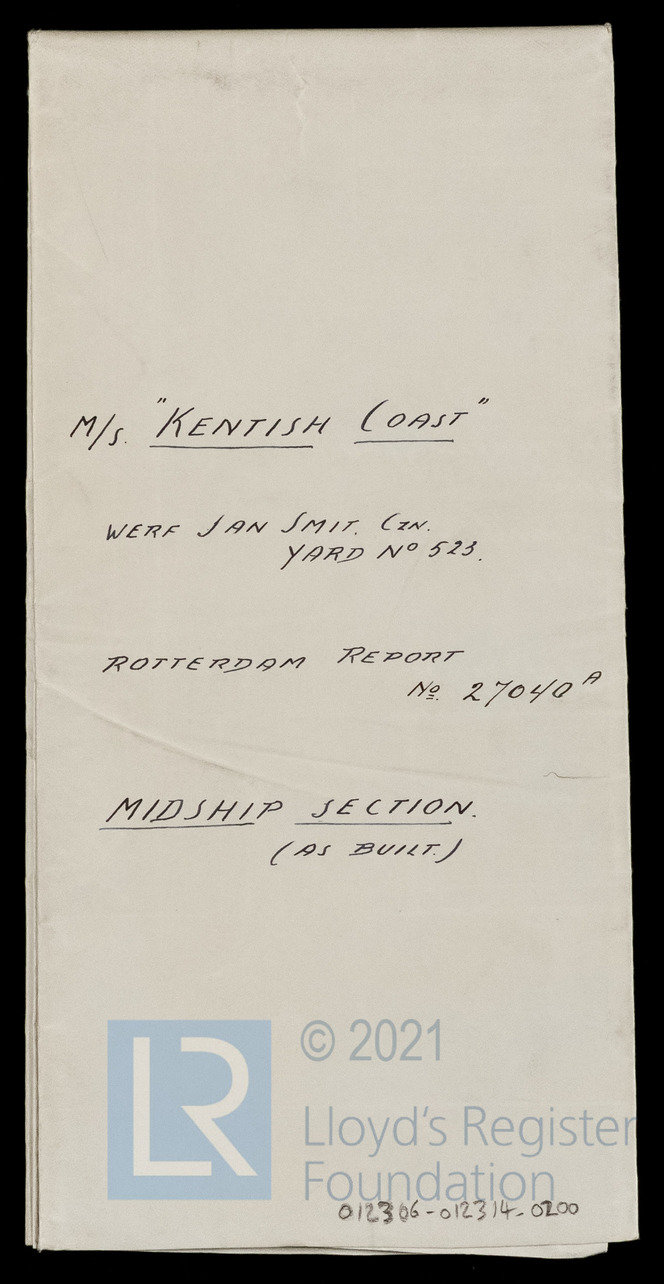 M/S. "KENTISH COAST"
WERF JAN SMIT. CZN.
YARD Nº 523.
ROTTERDAM REPORT
Nº. 27040 A
MIDSHIP SECTION.
(AS BUILT.)
LR
© 2021
Lloyd's Register
Foundation
012306-012314-0200